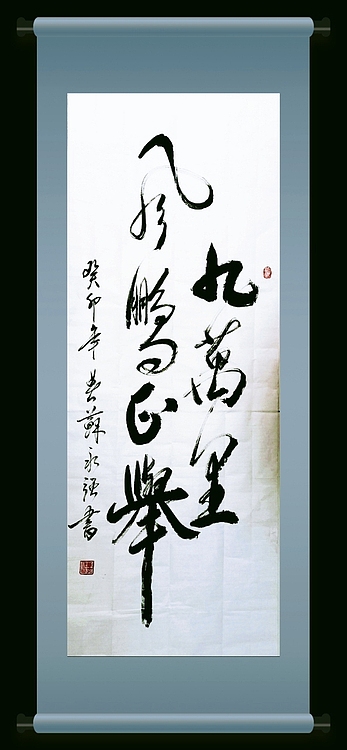 九萬里
風鵬正舉
癸卯年春蘇永强書